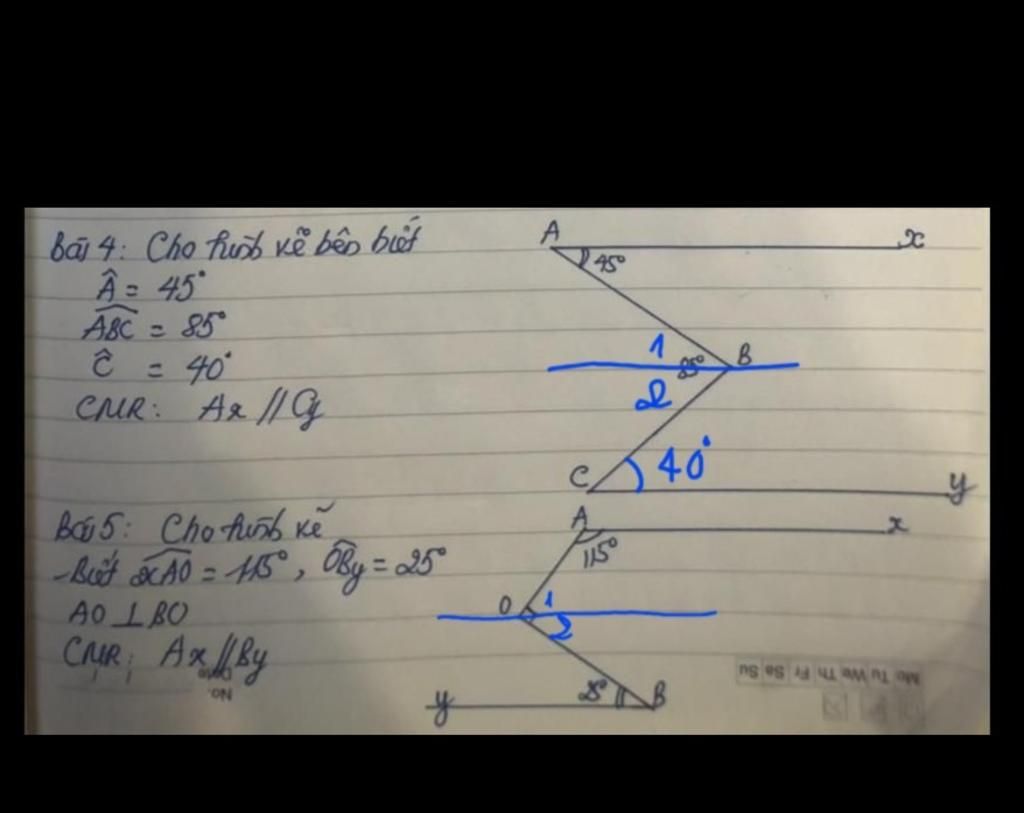 Bài 4: Cho hình vẽ bên biết
Â = 45°
ABC = 85°
Ĉ = 40°
CMR: Ax // Cy
A
x
45°
1
85°
B
2
C
40°
y
Bài 5: Cho hình vẽ
- Biết xAO = 115°, OBy = 25°
AO ⊥ BO
CMR: Ax // By
A
x
115°
O
1
2
y
25°
B
Date
No.
Mo Tu We Th Fr Sa Su